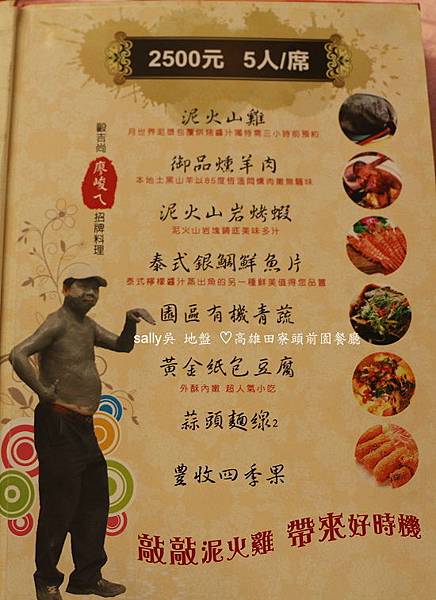 2500元 5人/席
泥火山雞
月世界泥漿包覆烘烤醬汁獨特需三小時前預約
御品燻羊肉
本地土黑山羊以85度恆溫悶燻肉嫩無騷味
泥火山岩烤蝦
泥火山岩塊鋪底美味多汁
泰式銀鯛鮮魚片
泰式檸檬醬汁蒸出魚的另一種鮮美值得您品嘗
園區有機青蔬
sally吳 地盤 ♡高雄田寮頭前園餐廳
黃金紙包豆腐
外酥內嫩 超人氣小吃
蒜頭麵線2
豐收四季果
敲敲泥火雞 帶來好時機
廖峻ㄟ
招牌料理